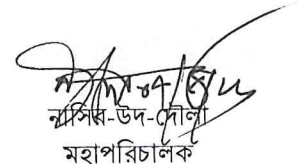 নাসির-উদ-দৌলা
মহাপরিচালক